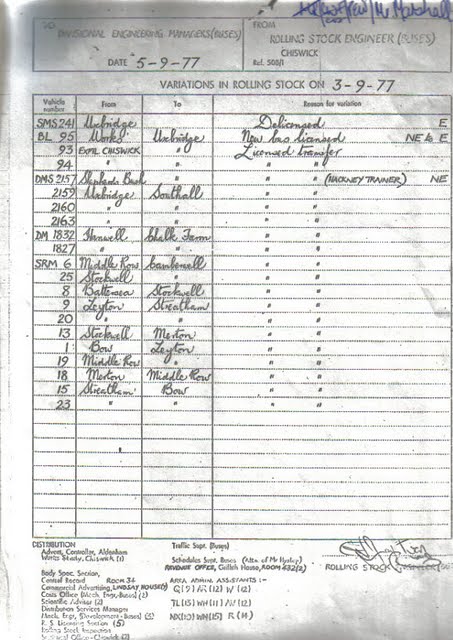 Mr Marshall
TO
DIVISIONAL ENGINEERING MANAGERS (BUSES)
DATE 5-9-77
FROM
ROLLING STOCK ENGINEER (BUSES)
CHISWICK
Ref. 500/1
VARIATIONS IN ROLLING STOCK ON 3-9-77
Vehicle number From To Reason for variation
SMS 241 Uxbridge Delicensed E
BL 95 Works Uxbridge New bus licensed NE to E
93 EXPTL CHISWICK " Licensed transfer
94 " " " "
DMS 2157 Shepherds Bush " " " (HACKNEY TRAINER) NE
2159 Uxbridge Southall " "
2160 " " " "
2163 " " " "
DM 1832 Hanwell Chalk Farm " "
1827 " " " "
SRM 6 Middle Row Camberwell " "
25 Stockwell " " "
8 Battersea Stockwell " "
9 Leyton Streatham " "
20 " " " "
13 Stockwell Merton " "
1 Bow Leyton " "
19 Middle Row " " "
18 Merton Middle Row " "
15 Streatham Bow " "
23 " " " "
DISTRIBUTION
Advert. Controller, Aldenham
Works Study, Chiswick (1)
Body Spec. Section
Central Record ROOM 36
Commercial Advertising, LINDSAY HOUSE
Costs Office (Mech. Engr. Buses) (2)
Scientific Adviser (2)
Distribution Services Manager
Mech. Engr. (Development-Buses)
R. S. Licensing Section (5)
Rolling Stock Inspection
Technical Office-Chiswick (2)
Traffic Supt. (Buses)
Schedules Supt. Buses
Griffith House, ROOM
AREA ADMIN. ASSISTANTS :-
ROLLING STOCK ENGINEER (BUSES)